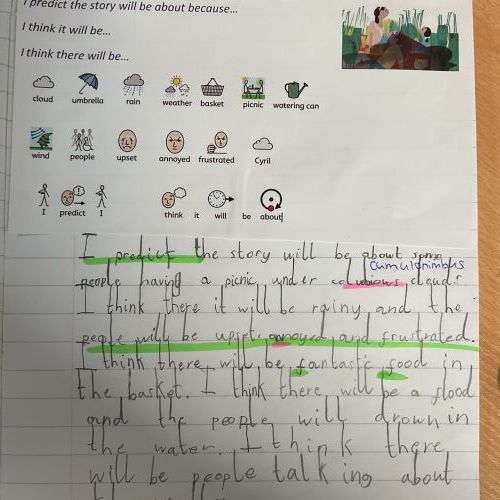 I predict the story will be about because...
I think it will be...
I think there will be...
cloud umbrella rain weather basket picnic watering can
wind people upset annoyed frustrated Cyril
I predict I think it will be about
I predict the story will be about some
cumulonimbus
people having a picnic under clouds.
I think there it will be rainy and the
people will be upset, annoyed and frustrated.
I think there will be fantastic food in
the basket. I think there will be a flood
and the people will drown in
the water. I think there
will be people talking about